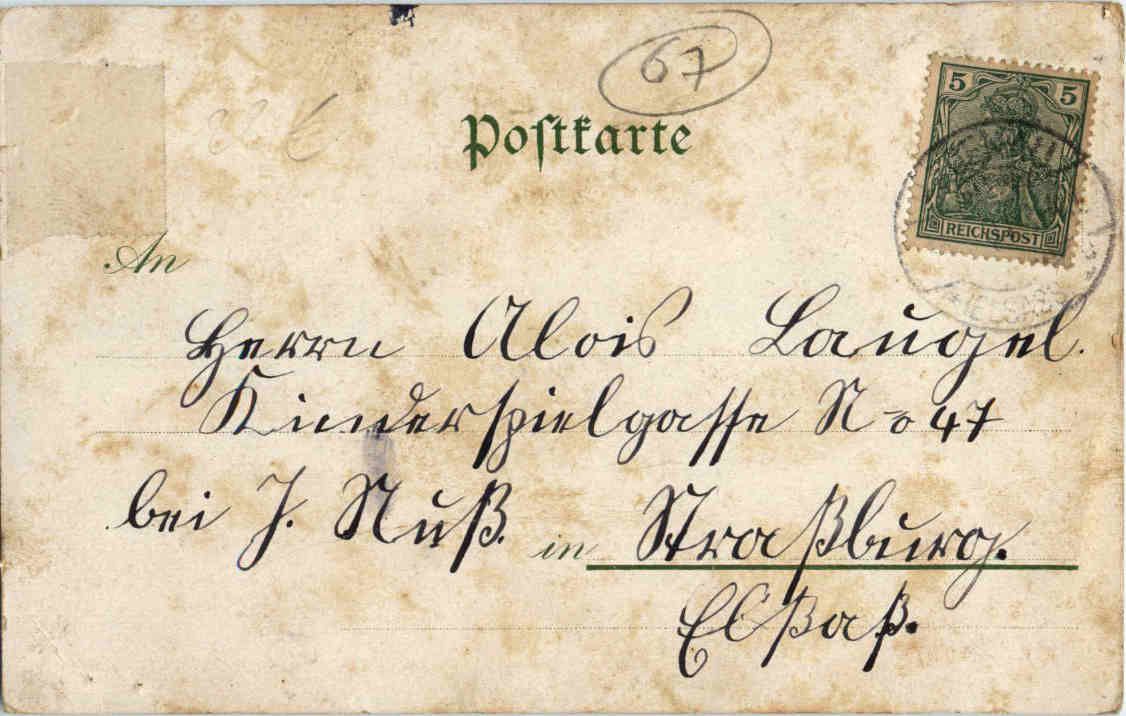 67
Poſtkarte
5 5
REICHSPOST
An
Herrn Alois Laugel.
Kinderspielgasse No 47
bei J. Nuß. in Straßburg.
Elßaß.